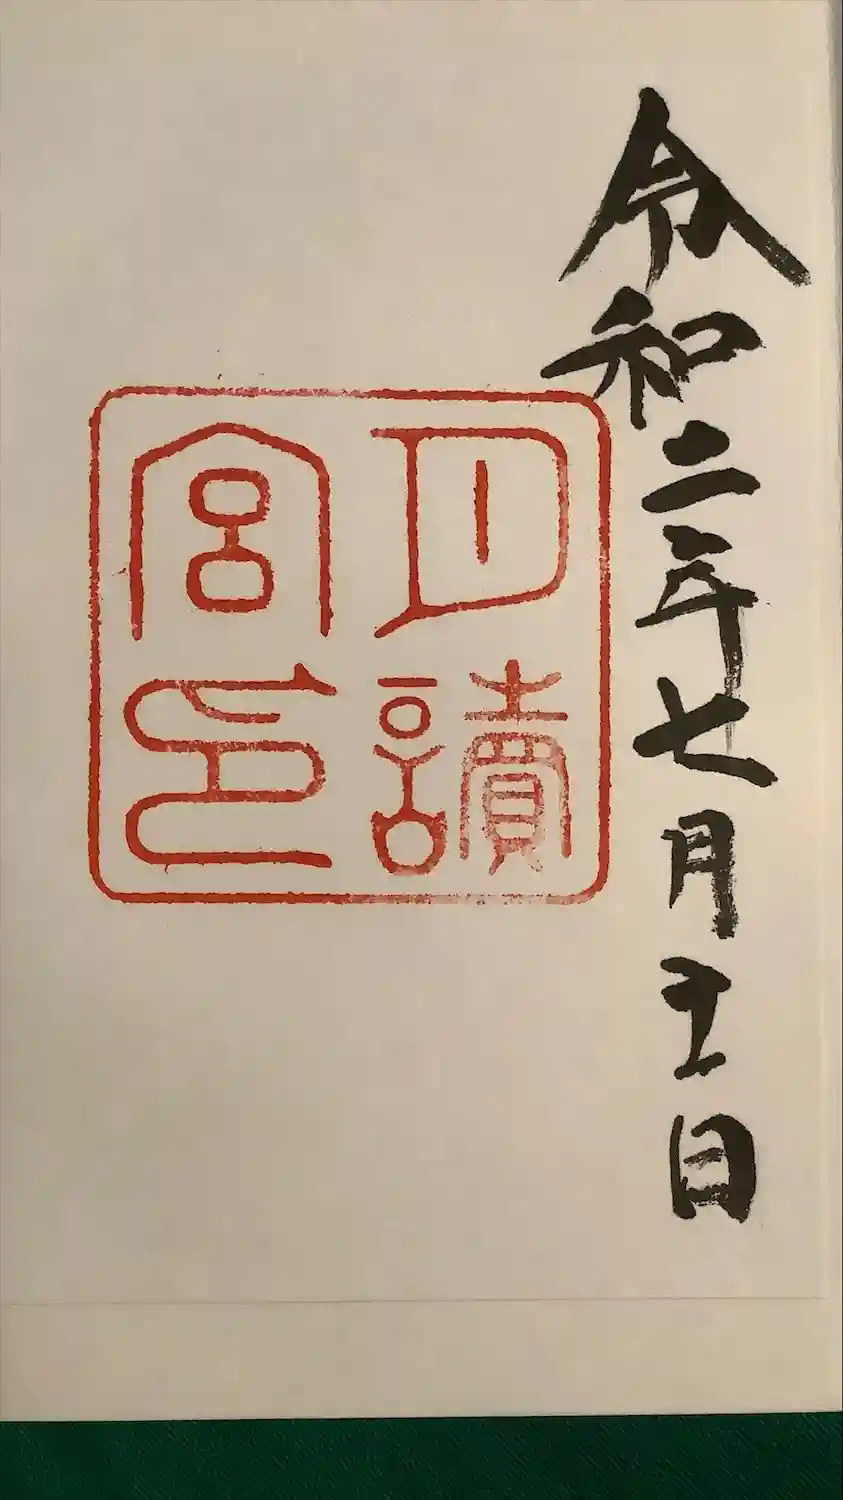 令和二年七月日
月讀
宮印